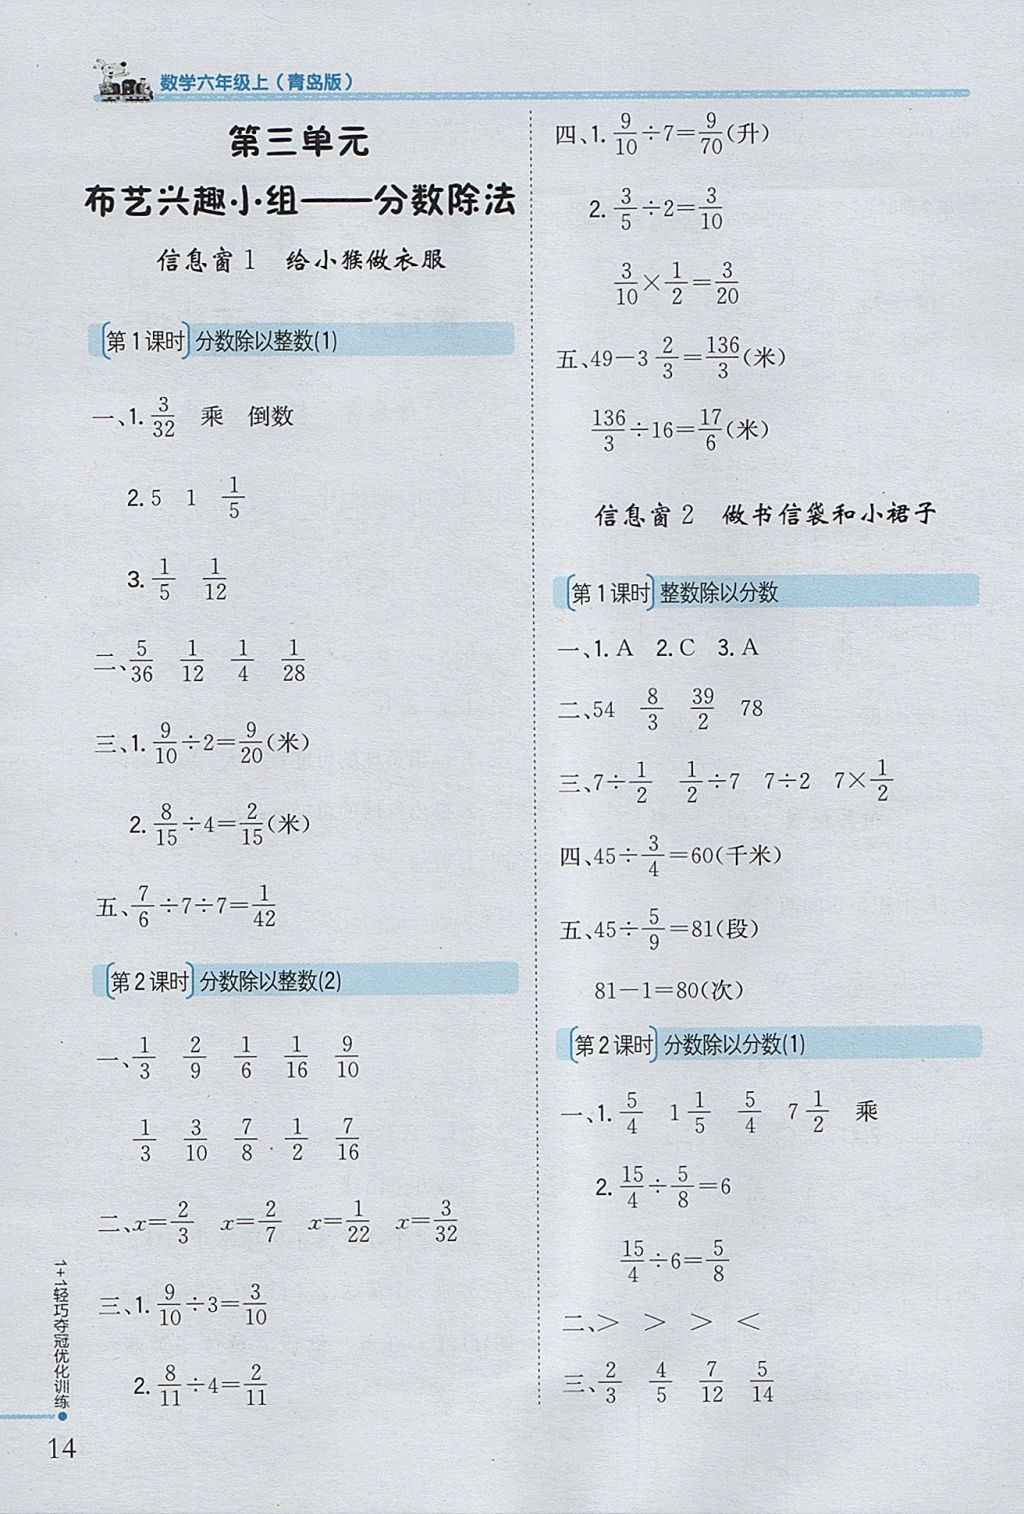 数学六年级上(青岛版)
第三单元
布艺兴趣小组——分数除法
信息窗1 给小猴做衣服
第1课时 分数除以整数(1)
一、1. 3/32 乘 倒数
2. 5 1 1/5
3. 1/5 1/12
二、5/36 1/12 1/4 1/28
三、1. 9/10÷2=9/20(米)
2. 8/15÷4=2/15(米)
五、7/6÷7÷7=1/42
第2课时 分数除以整数(2)
一、1/3 2/9 1/6 1/16 9/10
1/3 3/10 7/8 1/2 7/16
二、x=2/3 x=2/7 x=1/22 x=3/32
三、1. 9/10÷3=3/10
2. 8/11÷4=2/11
四、1. 9/10÷7=9/70(升)
2. 3/5÷2=3/10
3/10×1/2=3/20
五、49-3 2/3=136/3(米)
136/3÷16=17/6(米)
信息窗2 做书信袋和小裙子
第1课时 整数除以分数
一、1. A 2. C 3. A
二、54 8/3 39/2 78
三、7÷1/2 1/2÷7 7÷2 7×1/2
四、45÷3/4=60(千米)
五、45÷5/9=81(段)
81-1=80(次)
第2课时 分数除以分数(1)
一、1. 5/4 1 1/5 5/4 7 1/2 乘
2. 15/4÷5/8=6
15/4÷6=5/8
二、> > > <
三、2/3 4/5 7/12 5/14
1+1轻巧夺冠优化训练
14